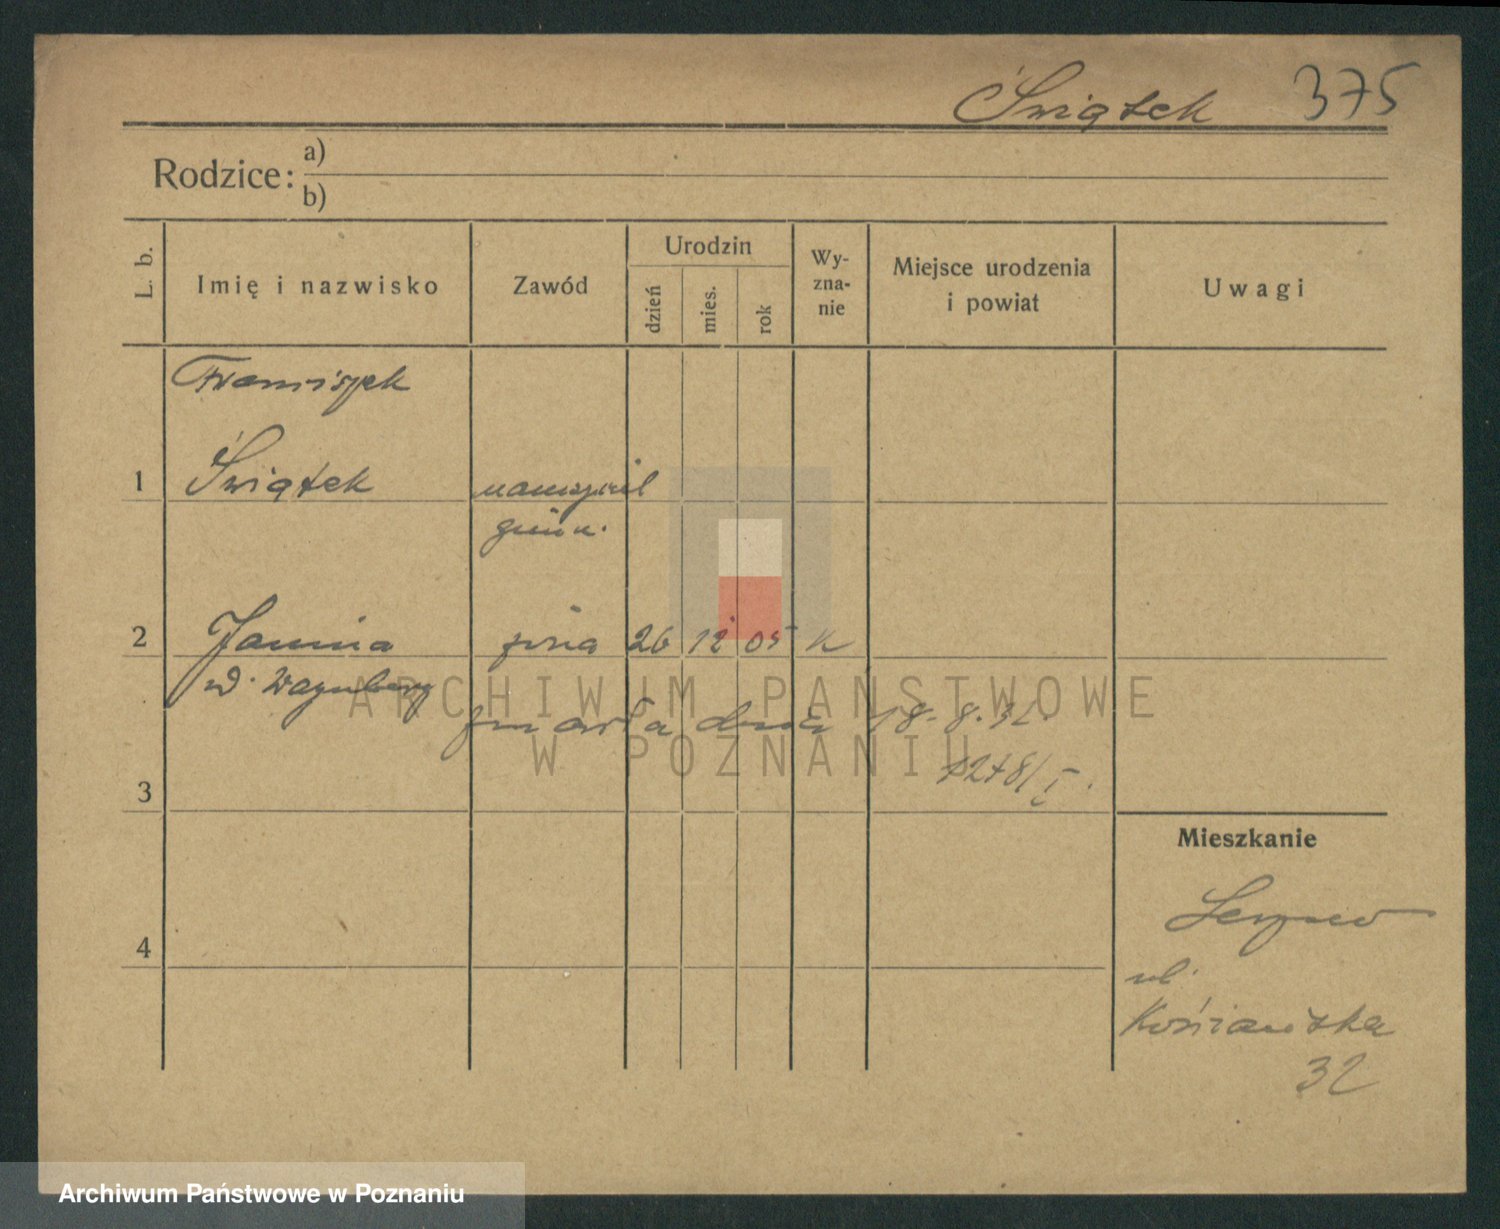 Świątek 375
Rodzice: a)
b)
L. b. Imię i nazwisko Zawód Urodzin dzień mies. rok Wy-zna-nie Miejsce urodzenia i powiat Uwagi
Franciszek
1 Świątek nauczyciel
gimn.
2 Janina żona 26 12 05 K
zmarła dnia 18.8.
3
Mieszkanie
4
ul.
Kościańska
32
ARCHIWUM PAŃSTWOWE
W POZNANIU
Archiwum Państwowe w Poznaniu